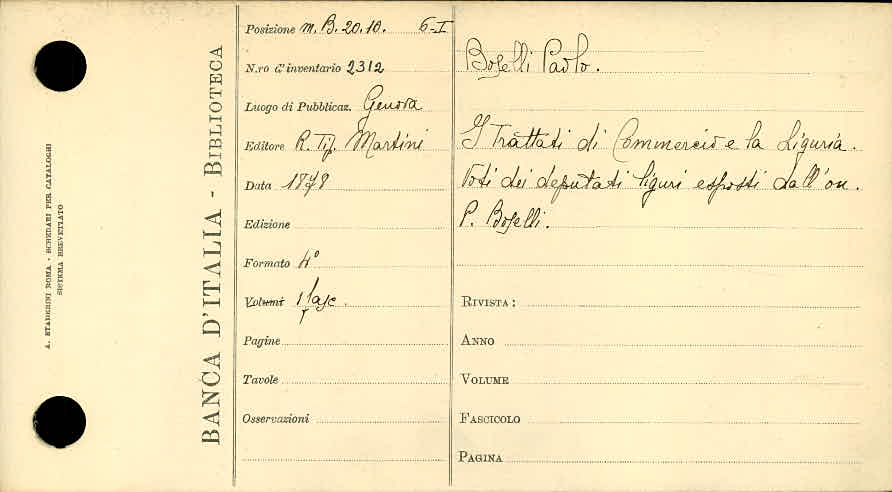 A. STADERINI ROMA - SCHEDARI PER CATALOGHI
SISTEMA BREVETTATO
BANCA D'ITALIA - BIBLIOTECA
Posizione m. B. 20. 10. 6-I
N.ro d'inventario 2312
Luogo di Pubblicaz. Genova
Editore R. Tip. Martini
Data
Edizione
Formato 4°
Volumi 1 fasc.
Pagine
Tavole
Osservazioni
Boselli Paolo.
I Trattati di Commercio e la Liguria.
Voti dei deputati liguri esposti dall'on.
P. Boselli.
RIVISTA:
ANNO
VOLUME
FASCICOLO
PAGINA